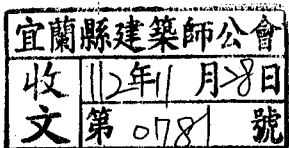 宜蘭縣建築師公會
收文
112年11月28日
第0781號